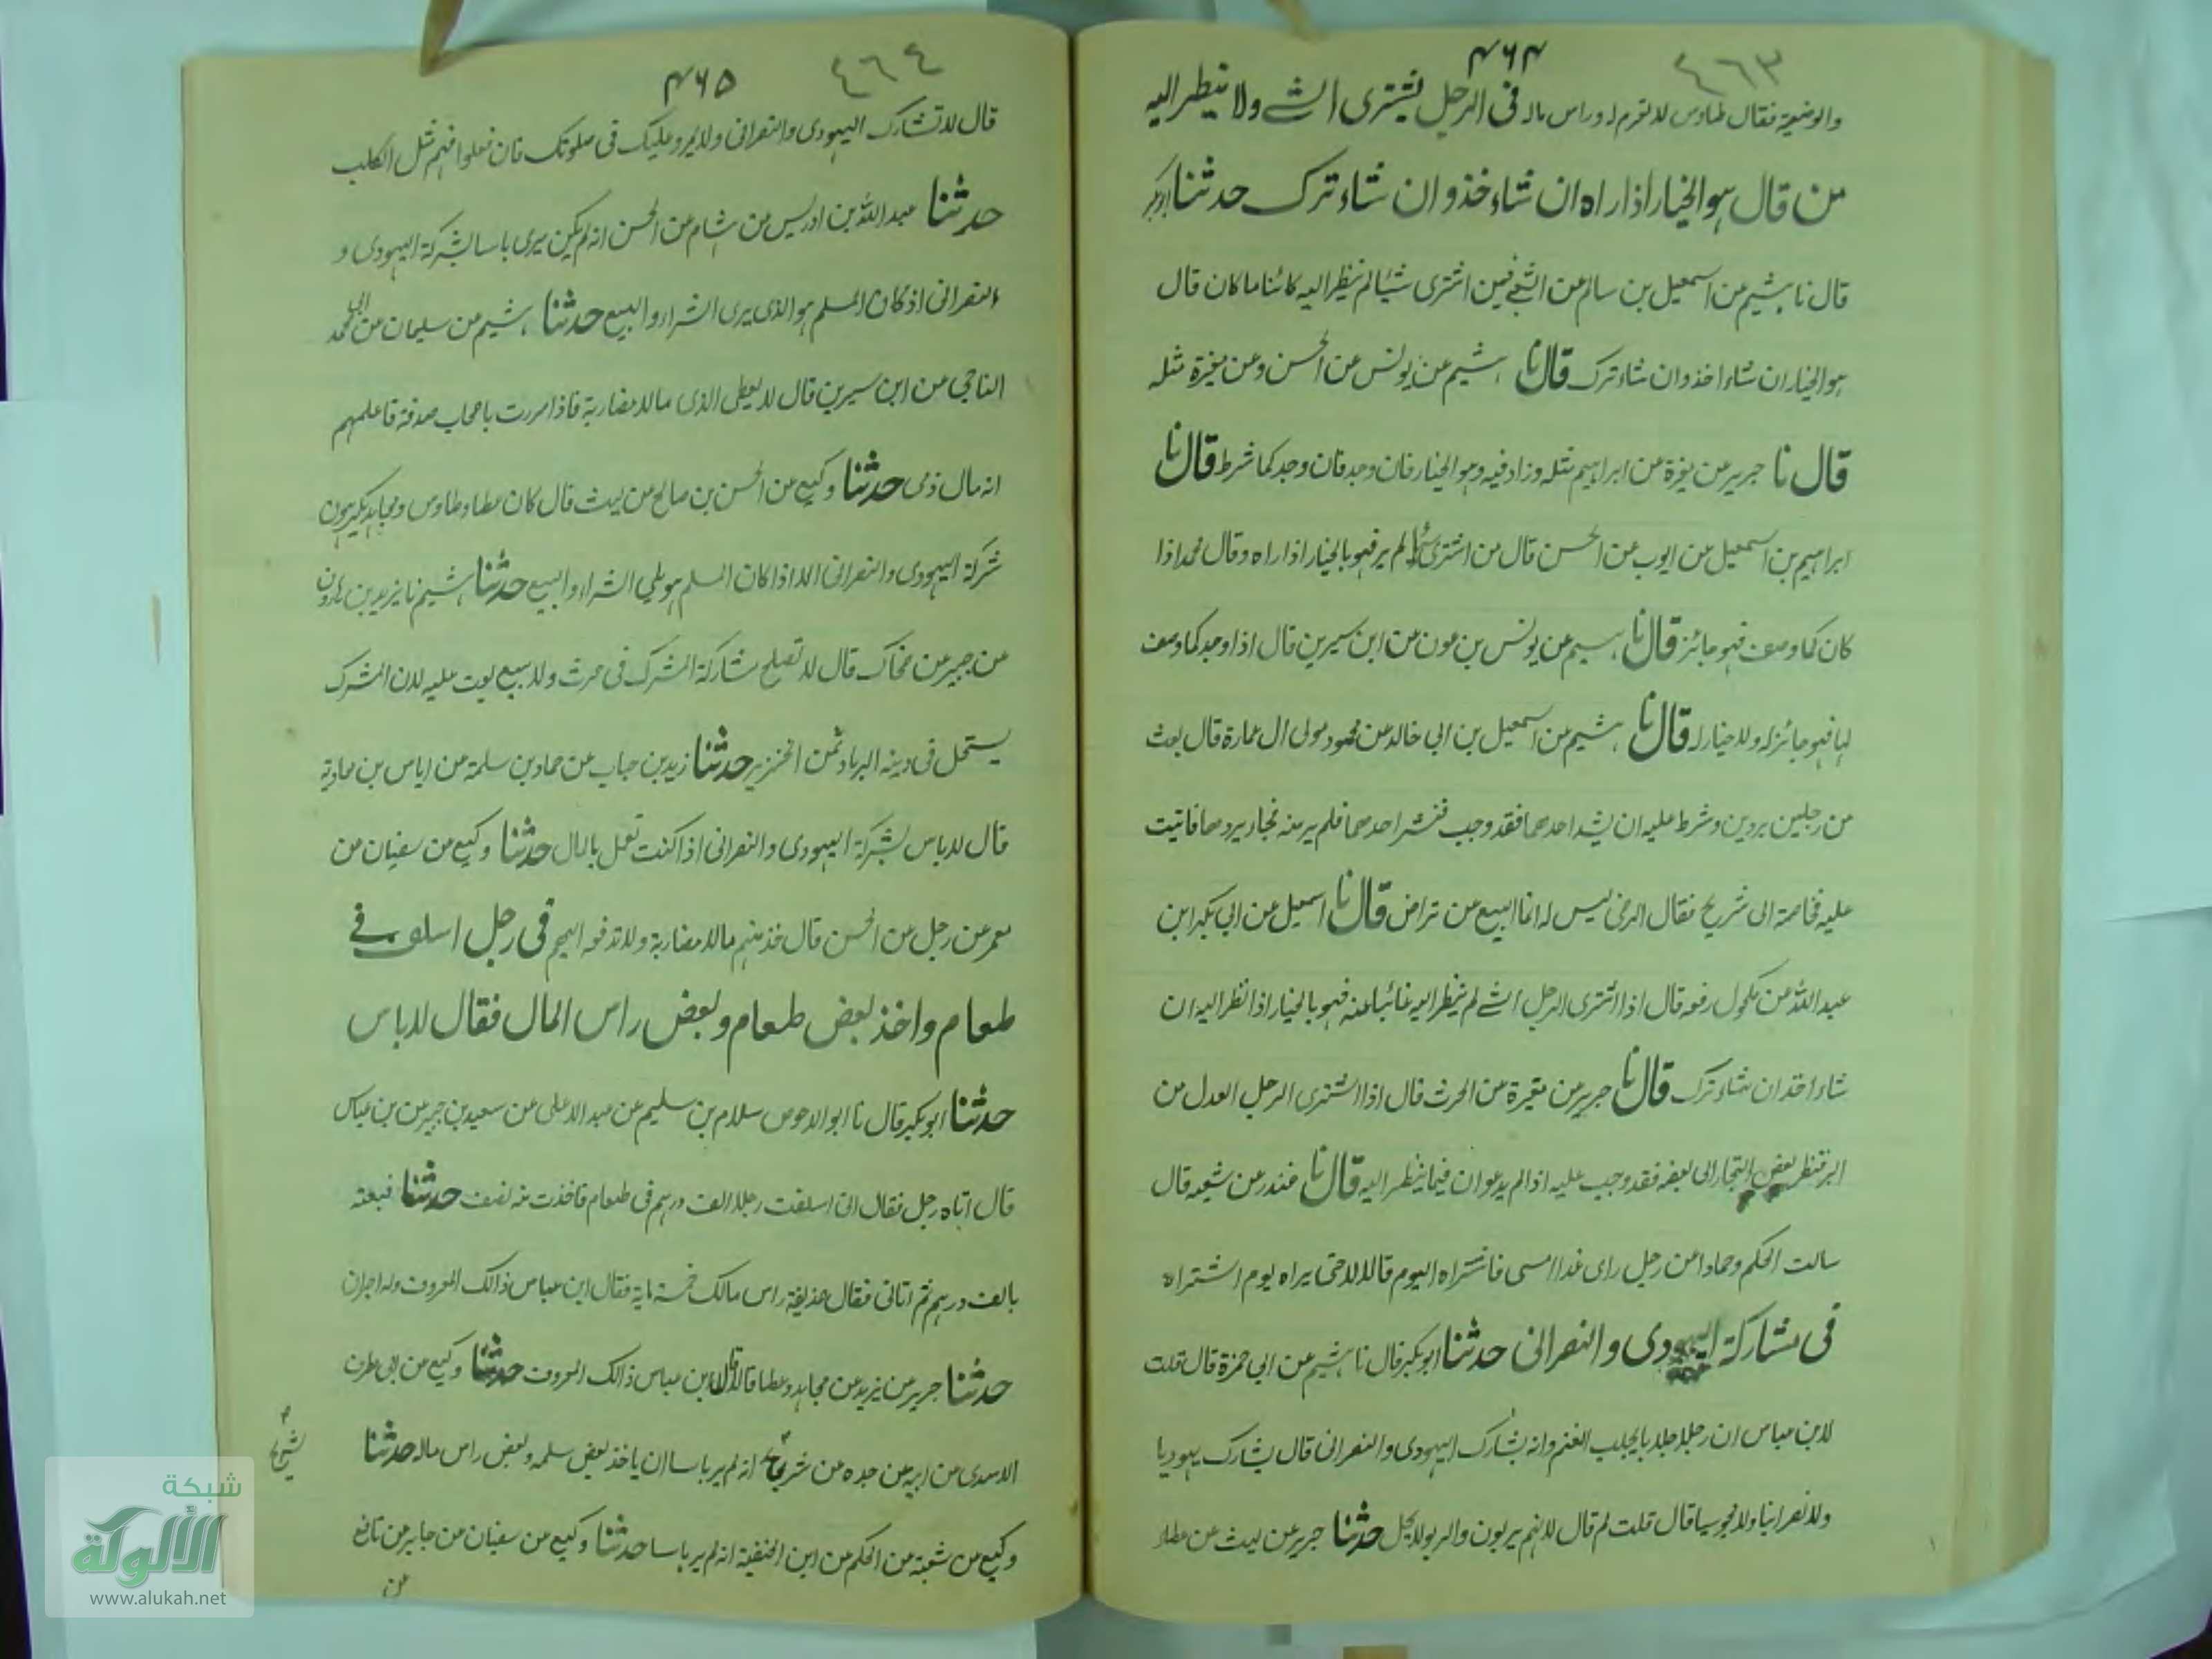 ٤٦٣
۴۶۴
والوضيعة فقال طاوس لا تغرم له وراس ماله فى الرجل يشترى الشے ولا ينظر اليه
من قال هو الخيار اذا راه ان شاء خذ وان شاء ترك حدثنا ابوبكر
قال نا هشيم من اسمعيل بن سالم من الشعبے فيمن اشترى شيئا لم ينظر اليه كائنا ما كان قال
هو الخيار ان شاء اخذ وان شاء ترك قال نا هشيم عن يونس عن الحسن وعن مغيرة مثله
قال نا جرير عن مغيرة من ابراهيم مثله وزاد فيه وهو الخيار فان وجد فان وجد كما شرط قال نا
ابراهيم بن اسمعيل من ايوب من الحسن قال من اشترى شيئا لم يره فهو بالخيار اذا راه وقال محمد اذا
كان كما وصف فهو جائز قال نا هشيم من يونس بن عون من ابن سيرين قال اذا وجد كما وصف
لها فهو جائز له ولا خيار له قال نا هشيم من اسمعيل بن ابى خالد من محمود مولى ال عمارة قال بعث
من رجلين بردين وشرط عليه ان نشر احدهما فقد وجب فنشر احدهما فلم ير منه فجاء يردهما فابيت
عليه فخاصمته الى شريح فقال الرضى ليس له انما البيع عن تراض قال نا اسمعيل عن ابى بكر ابن
عبد اللّٰه من مكحول رفعه قال اذا اشترى الرجل الشے لم ينظر اليه غائبا عنه فهو بالخيار اذا نظر اليه ان
شاء اخذ ان شاء ترك قال نا جرير من مغيرة من الحرث قال اذا اشترى الرجل العدل من
البز فنظر بعض التجار الى بعضه فقد وجب عليه اذا لم ير عوان فيما ينظر اليه قال نا غندر عن شعبه قال
سالت الحكم وحمادا من رجل راى عبدا امسى فاشتراه اليوم قالا لا حتى يراه يوم اشتراه
فى مشاركة اليهودى والنصرانى حدثنا ابوبكر قال نا هشيم عن ابى حمزة قال قلت
لابن عباس ان رجلا جلابا يجلب الغنم وانه يشارك اليهودى والنصرانى قال يشارك يهوديا
ولا نصرانيا ولا مجوسيا قال قلت لم قال لانهم يربون والربو لا يحل حدثنا جرير عن ليث عن عطاء
٤٦٤
۴۶۵
قال لا تشارك اليهودى والنصرانى ولا يمروا عليك فى صلوتك فان فعلوا فهم مثل الكلب
حدثنا عبد اللّٰه بن ادريس من هشام من الحسن انه لم يكن يرى باسا بشركة اليهودى و
النصرانى اذ كان المسلم هو الذى يرى الشراء والبيع حدثنا هشيم من سليمان من ابى محمد
الناجى من ابن سيرين قال لا يعطى الذمى مالا مضاربة فاذا مررت باصحاب صدقة فاعلمهم
انه مال ذمى حدثنا وكيع من الحسن بن صالح من ليث قال كان عطاء وطاوس ومجاهد يكرهون
شركة اليهودى والنصرانى الا اذا كان المسلم هو يلى الشراء والبيع حدثنا هشيم نا يزيد بن هارون
من جبير من ضحاك قال لا تصلح مشاركة المشرك فى حرث ولا بيع يعيب عليه لان المشرك
يستحل فى دينه الربا وثمن الخنزير حدثنا زيد بن حباب من حماد بن سلمة من اياس بن معاوية
قال لا باس بشركة اليهودى والنصرانى اذا كنت تعمل بالمال حدثنا وكيع من سفيان من
معمر من رجل من الحسن قال خذ منهم مالا مضاربة ولا تدفعه اليهم فى رجل اسلف فے
طعام واخذ بعض طعام وبعض راس المال فقال لا باس
حدثنا ابوبكر قال نا ابو الاحوص سلام بن سليم من عبد الاعلى من سعيد بن جبير من بن عباس
قال اتاه رجل فقال انى اسلفت رجلا الف درهم فى طعام فاخذت منه نصف حدثنا فبعته
بالف درهم ثم اتانى فقال خذ بقية راس مالك خمسة ماية فقال ابن عباس ذالك المعروف وله اجران
حدثنا جرير من يزيد من مجاهد وعطا قالا قال ابن عباس ذالك المعروف حدثنا وكيع من ابى طرف
الاسدى من ابيه من جده من شريح انه لم ير باسا ان ياخذ بعض سلمه وبعض راس ماله حدثنا
شريح
وكيع من شعبة من الحكم من ابن الحنفية انه لم ير باسا حدثنا وكيع من سفيان من جابر من نافع
من
شبكة
الألوكة
www.alukah.net